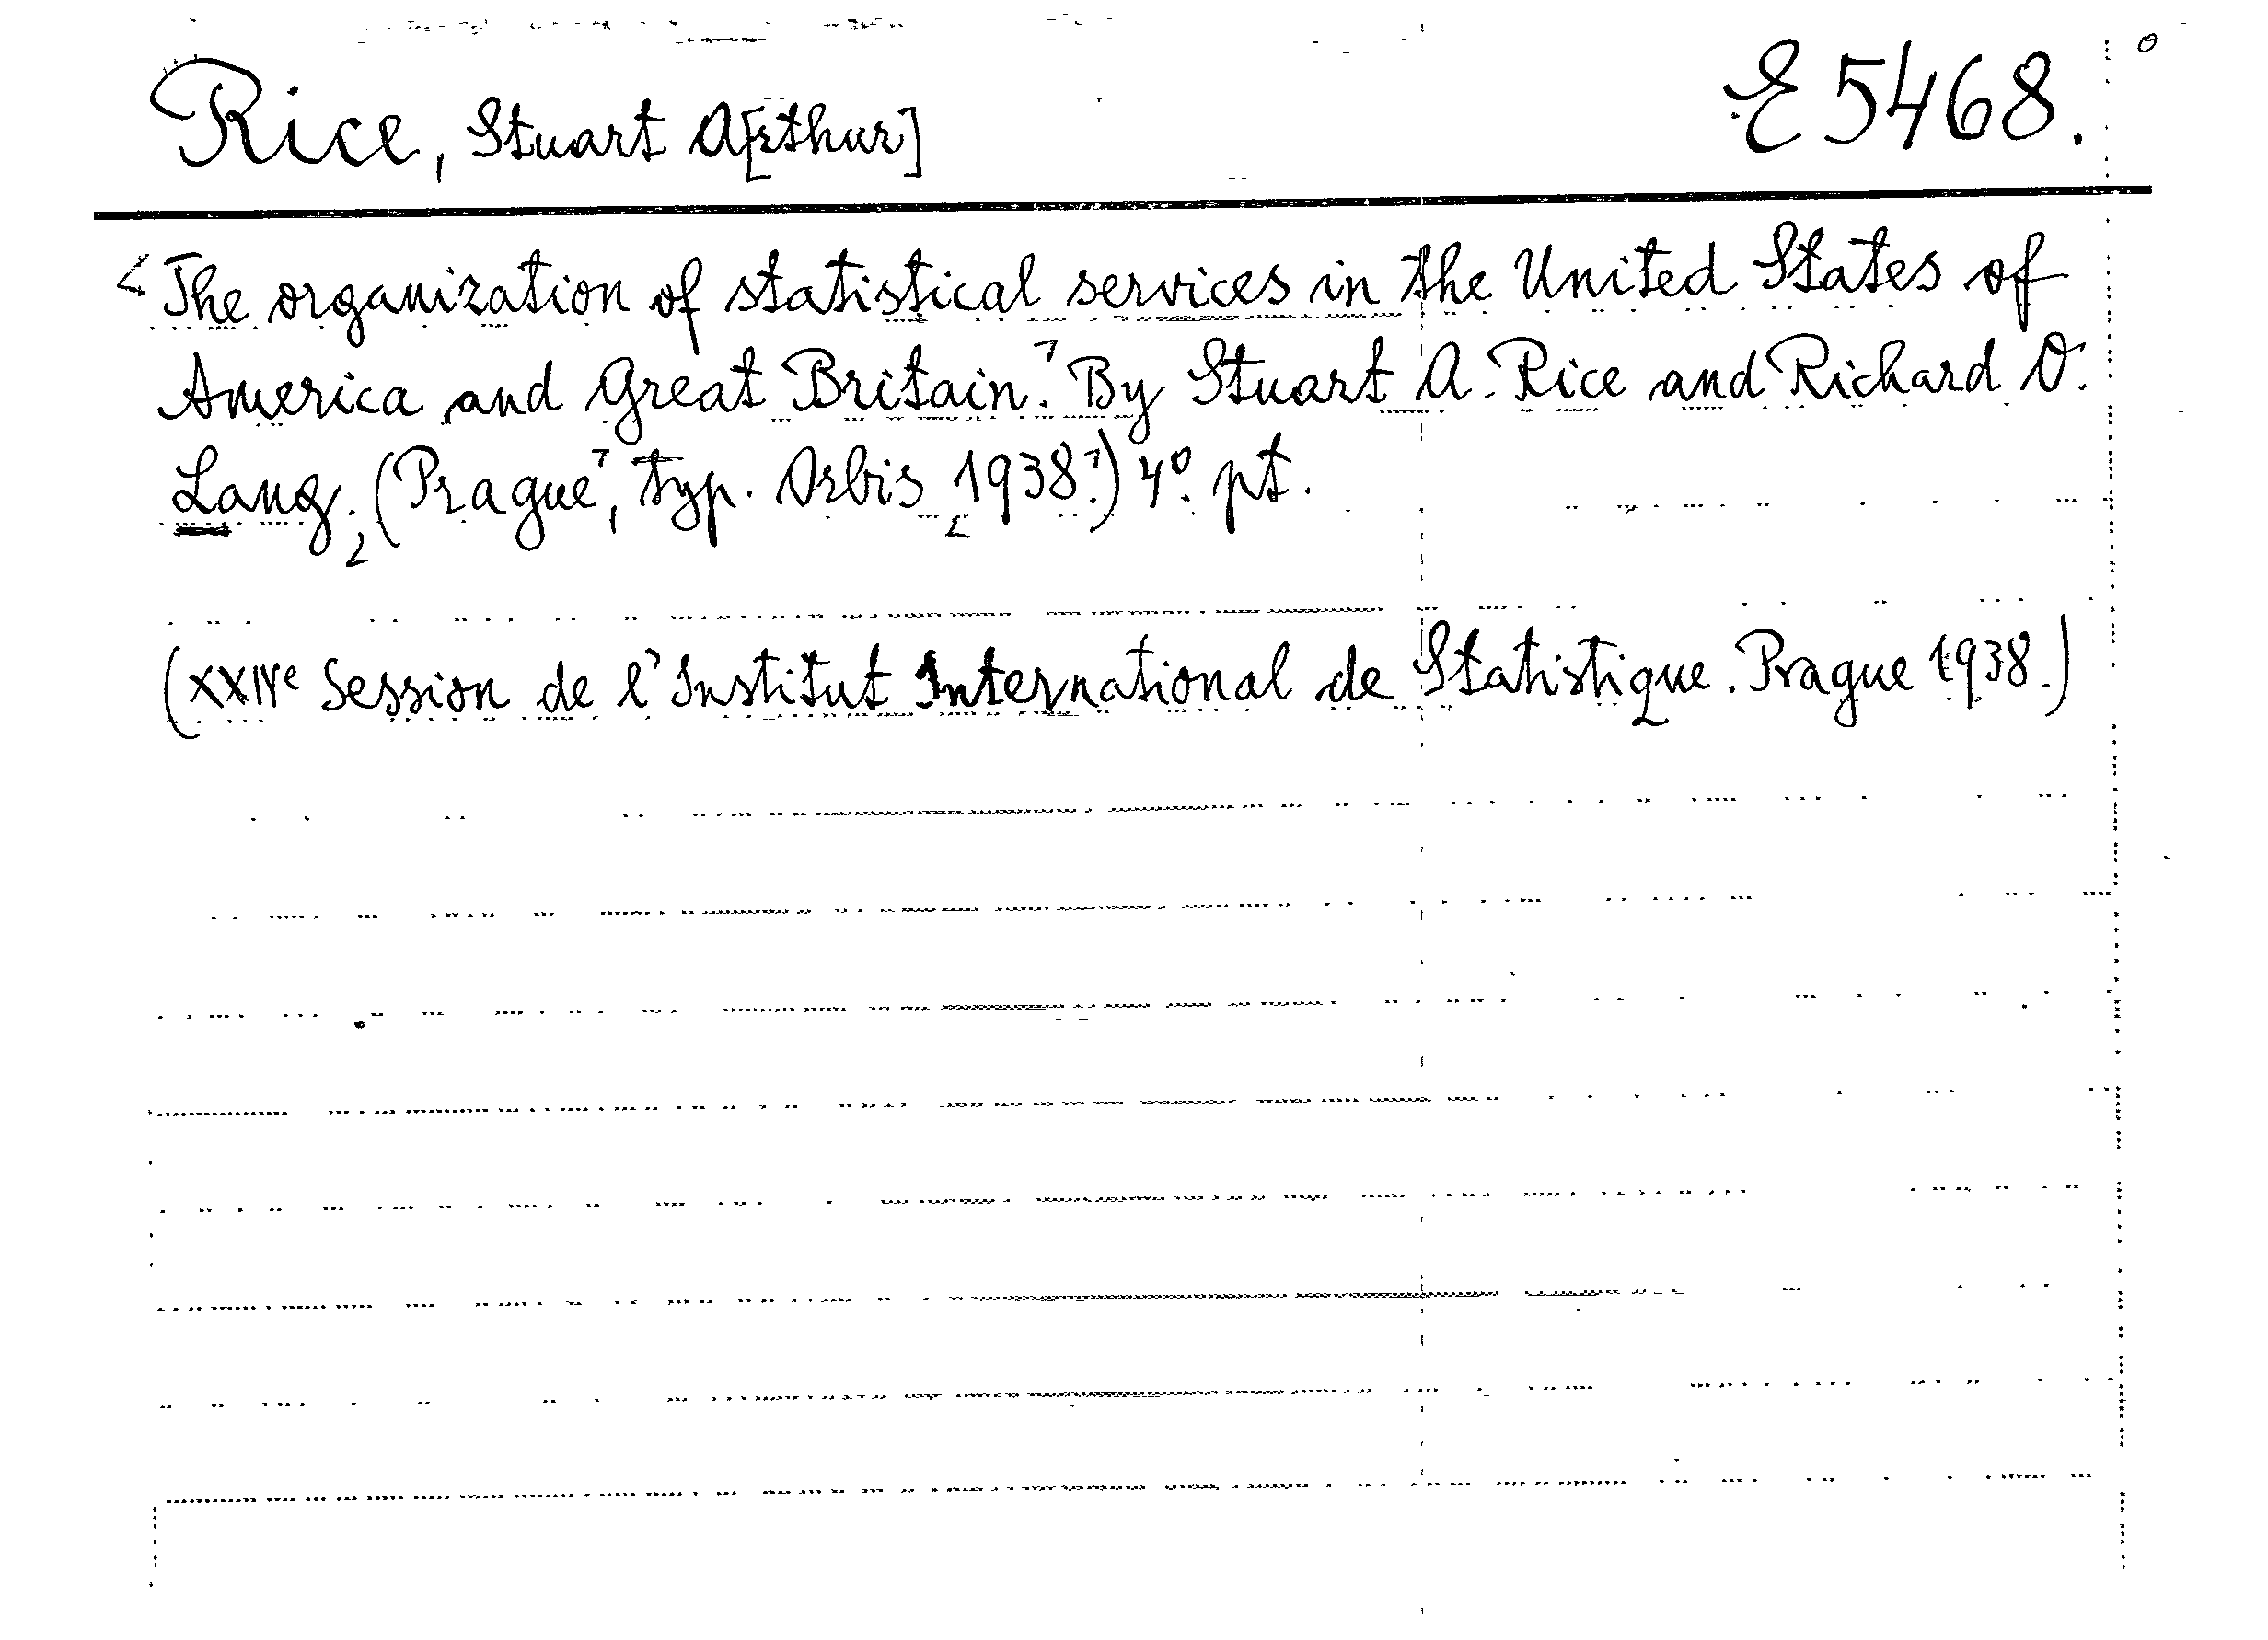 Rice, Stuart A[rthur] E 5468.
The organization of statistical services in the United States of
America and Great Britain. By Stuart A. Rice and Richard O.
Lang. (Prague, typ. Orbis 1938.) 4º. pt.
(XXIVe Session de l'Institut International de Statistique. Prague 1938.)